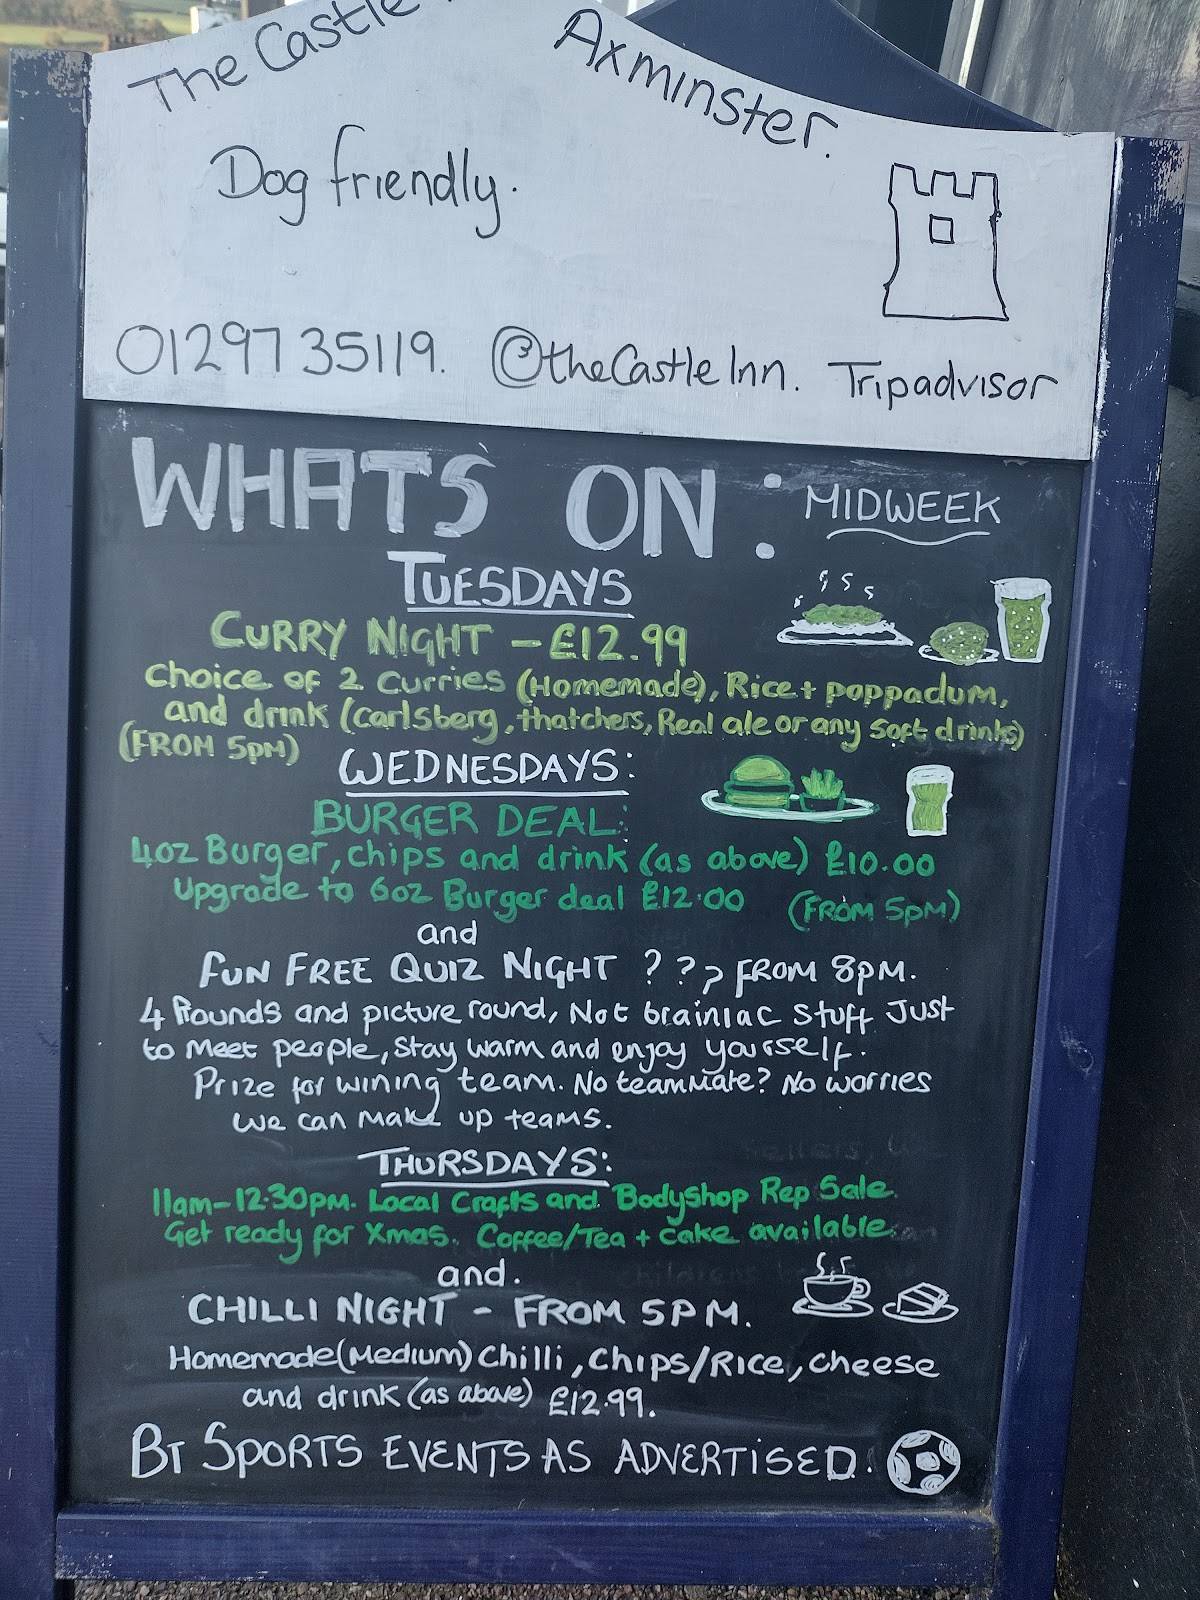 The Castle
Axminster.
Dog friendly.
01297 35119. @theCastle Inn. Tripadvisor
WHATS ON: MIDWEEK
TUESDAYS
CURRY NIGHT - £12.99
Choice of 2 Curries (Homemade), Rice + poppadum,
and drink (Carlsberg, thatchers, Real ale or any soft drinks)
(FROM 5pm)
WEDNESDAYS:
BURGER DEAL:
4oz Burger, chips and drink (as above) £10.00
Upgrade to 6oz Burger deal £12.00 (FROM 5pm)
and
FUN FREE QUIZ NIGHT ??? FROM 8PM.
4 Rounds and picture round, Not brainiac stuff Just
to Meet people, stay warm and enjoy yourself.
Prize for wining team. No teammate? No worries
we can make up teams.
THURSDAYS:
11am-12.30pm. Local Crafts and Bodyshop Rep Sale.
Get ready for Xmas. Coffee/Tea + cake available
and.
CHILLI NIGHT - FROM 5PM.
Homemade (Medium) Chilli, Chips/Rice, cheese
and drink (as above) £12.99.
BT SPORTS EVENTS AS ADVERTISED.